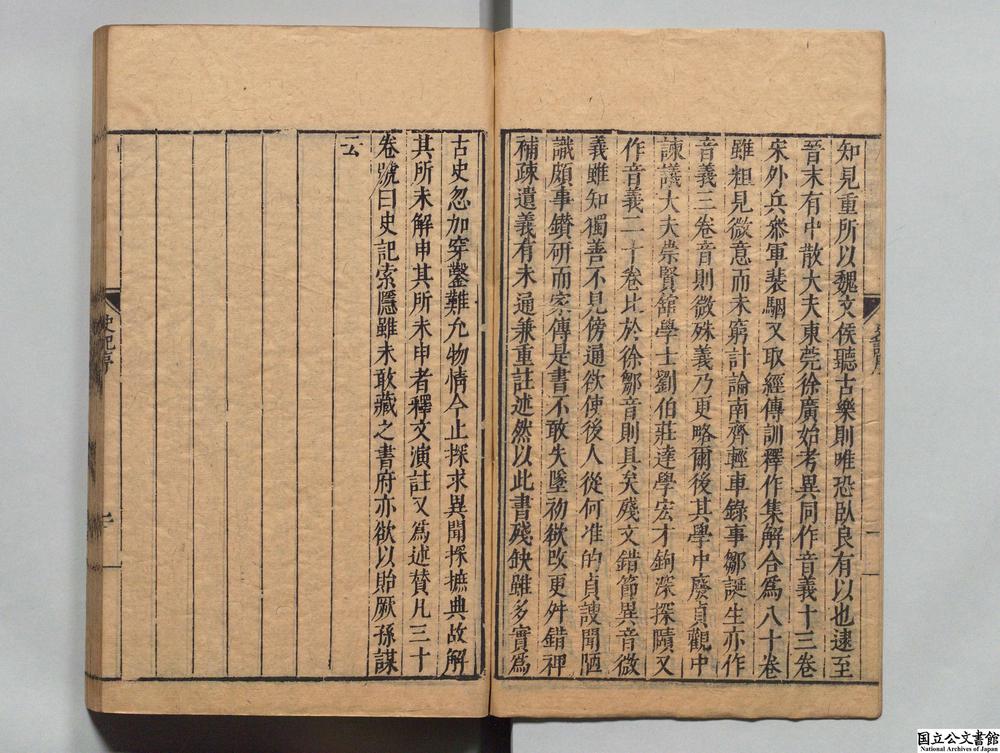 知見重所以魏文侯聽古樂則唯恐臥良有以也逮至
晉末有中散大夫東莞徐廣始考異同作音義十三卷
宋外兵叅軍裴駰又取經傳訓釋作集解合爲八十卷
雖粗見微意而未窮討論南齊輕車錄事鄒誕生亦作
音義三卷音則微殊義乃更略爾後其學中廢貞觀中
諫議大夫崇賢舘學士劉伯莊達學宏才鉤深探賾又
作音義二十卷比於徐鄒音則具矣殘文錯節異音微
義雖知獨善不見傍通欲使後人從何准的貞謏聞陋
識頗事鑚研而家傳是書不敢失墜初欲改更舛錯裨
補疎遺義有未通兼重註述然以此書殘缺雖多實爲
古史忽加穿鑿難允物情今止探求異聞採摭典故解
其所未解申其所未申者釋文演註又爲述賛凡三十
卷號曰史記索隱雖未敢藏之書府亦欲以貽厥孫謀
云
史記序
国立公文書館
National Archives of Japan